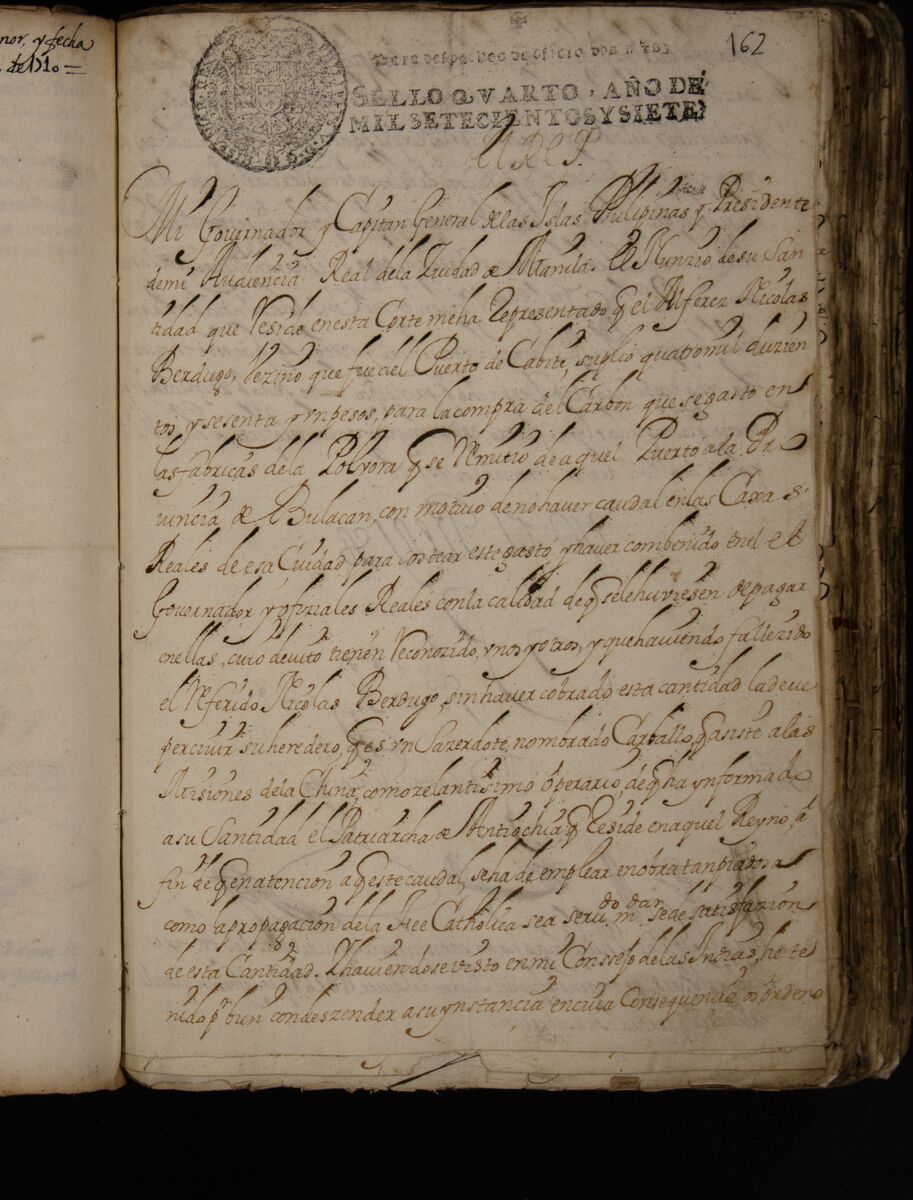 nor. y fecha
de 1710 =
162
Para despachos de oficio dos mrs.
SELLO QVARTO, AÑO DE
MIL SETECIENTOS Y SIETE
El Rey.
Mi Governador y Capitan General de las Islas Philipinas y Presidente
de mi Audiencia Real de la Ziudad de Manila. El Nunzio de su San
tidad que reside en esta Corte me ha representado q el Alferez Nicolas
Berdugo, Vezino que fue del Puerto de Cabite, suplio quatro mil duzien
tos y sesenta y un pesos, para la compra del Carbon que se gasto en
las fabricas de la Polvora q se remitio de aquel Puerto a la Pro
uincia de Bulacan, con motiuo de no haver caudal en las Caxas
Reales de esa Ciudad para costear este gasto y haver combenido en el el
Governador y ofiziales Reales con la calidad de q se le huviesen de pagar
en ellas, cuio devito tienen reconozido, unos y otros, y que haviendo fallezido
el referido Nicolas Berdugo, sin haver cobrado esta cantidad la deve
percivir su heredero, q es un Sazerdote, nombrado Carballo, q asiste a las
Misiones de la China, como zelantisimo operario de q ha ynformado
a su Santidad el Patriarcha de Antiochia q reside en aquel Reyno, a
fin de q en atencion a q este caudal, se ha de emplear en obra tan piadosa
como la propagacion de la Fee Catholica sea seruido mandar se de satisfazion
de esta Cantidad. Y haviendose visto en mi Conssejo de las Indias, he te
nido pr bien condeszender a su ynstancia en cuia Consequencia os ordeno